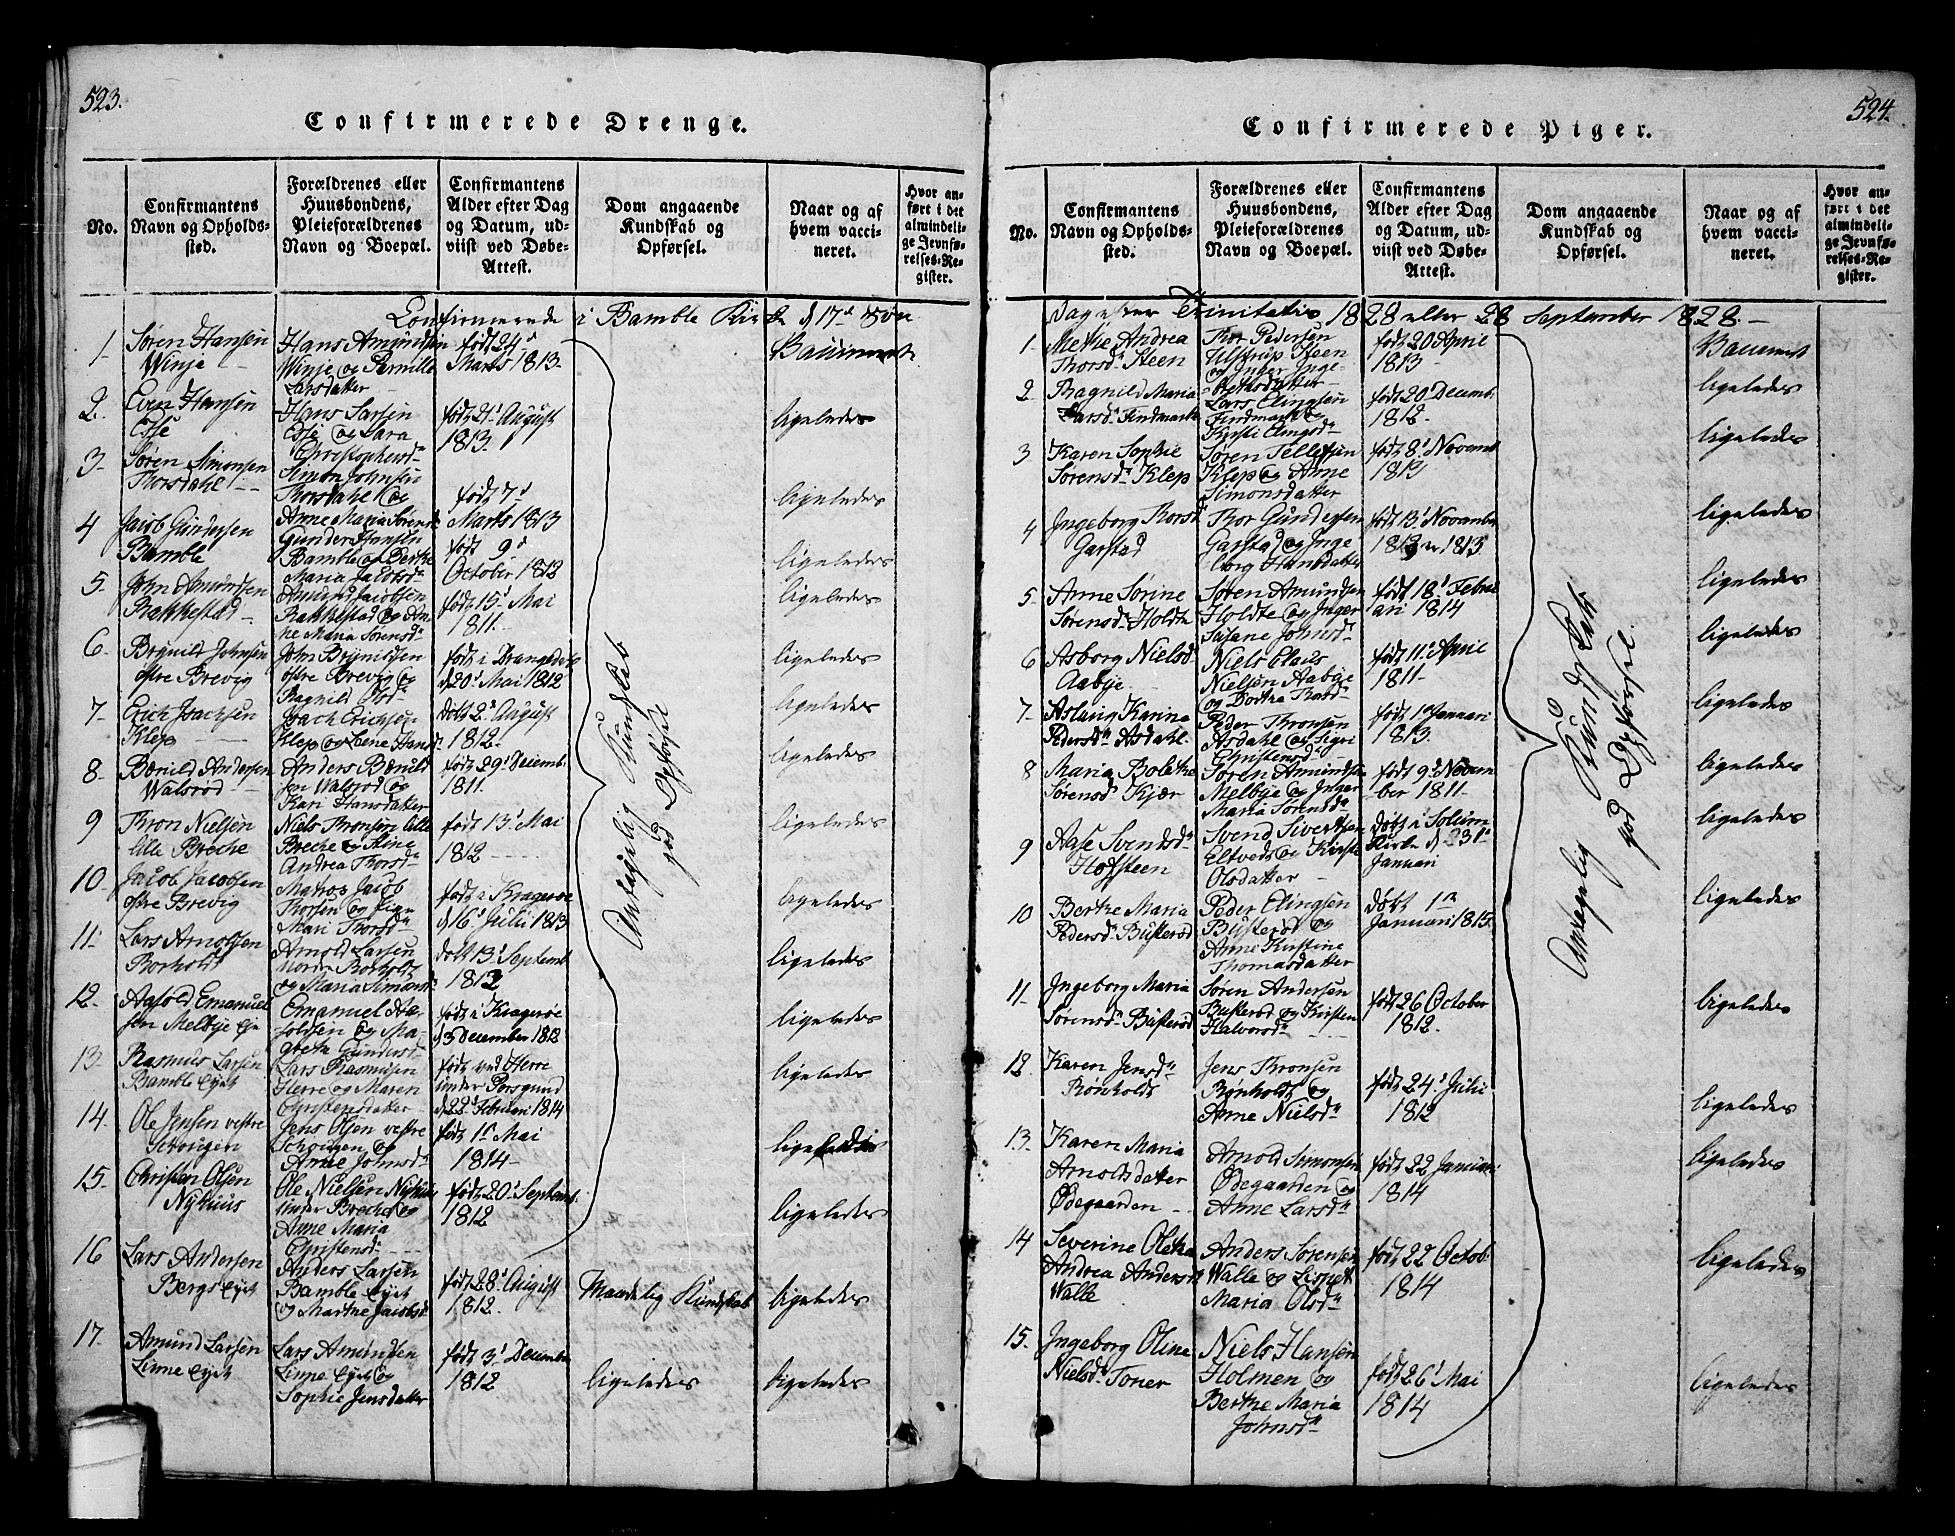 523.
Confirmerede Drenge.
No.
Confirmantens Navn og Opholdssted.
Forældrenes eller Huusbondens, Pleieforældrenes Navn og Boepæl.
Confirmantens Alder efter Dag og Datum, udviist ved Døbe-Attest.
Dom angaaende Kundskab og Opførsel.
Naar og af hvem vaccineret.
Hvor anført i det almindelige Jevnførelses-Register.
Confirmerede i Bamble Kirke d 17de Søn
1
Søren Hansen
Winje
Hans Amundsen
Winje og Pernille
Larsdatter
født 24d
Marts 1813
Vaccineret
2.
Even Hansen
Hans Larsen
og Sara
Christophersd
født 21d August
1813
ligeledes
3
Søren Simonsen
Thorsdahl
Simon Johnsen
Thorsdahl og
Anne Maria Sørensd
født 7d
Marts 1813
ligeledes
4
Jacob Gundersen
Bamble
Gunder Hansen
Bamble og Berthe
Maria Jacobsdr
født 9d
October 1812
ligeledes
5
John Amundsen
Rakkestad
Amund Jacobsen
Rakkestad og An
ne Maria Sørensdr
født 15d Mai
1811
ligeledes
6
Brynild Johnsen
østre Brevig
John Brynildsen
østre Brevig og
Ragnild Olsdr
født i Drangedal
d 20d Mai 1812
ligeledes
7
Erich Isachsen
Klep
Isach Erichsen
Klep og Lene Hansdr
døbt 2d August
1812
ligeledes
8
Børuld Andersen
Walsrød
Anders Børuld
sen Walsrød og
Kari Hansdatter
født 29d Decemb.
1811
ligeledes
9
Thron Nielsen
lille Breche
Niels Thronsen lille
Breche og Stine
Andrea Thorsdr
født 13d Mai
1812
ligeledes
10
Jacob Jacobsen
østre Brevig
Matros Jacob
Thorsen og
Mari Thorsdr
født i Kragerøe
d 16d Julii 1813
ligeledes
11
Lars Arnoldsen
Borholdt
Arnold Larsen
Nordre Borholdt
og Maria Simonsdr
døbt 13d Septemb
1812
ligeledes
12
Emanuel
sen Melbye Eje
Emanuel
og Ma
grethe Gundersdr
født i Kragerøe
d 3 December 1812
ligeledes
13
Rasmus Larsen
Bamble Ejet
Lars Rasmusen
Herre og Maren
Christensdatter
født ved Herre
under Porsgrund
d 22d Februari 1814
ligeledes
14
Ole Jensen vestre
Schougen
Jens Olsen vestre
Schougen og
Anne Johnsdr
født 1d Mai
1814
ligeledes
15
Christen Olsen
Nyhuus
Ole Nielsen Nyhuus
under Breche og
Anne Maria
Christensd
født 20d Septemb.
1812
ligeledes
Antagelig Kundskab
god Opførsel
16
Lars Andersen
Bergs Ejet
Anders Larsen
Bamble Ejet
og Marthe Jacobsd
født 28d August
1812
Maadelig Kundskab
ligeledes
17
Amund Larsen
Linne Ejet
Lars Amundsen
Linne Ejet og
Sophie Jensdatter
født 3d Decembr
1812
ligeledes
ligeledes
524.
Confirmerede Piger.
No.
Confirmantens Navn og Opholdssted.
Forældrenes eller Huusbondens, Pleieforældrenes Navn og Boepæl.
Confirmantens Alder efter Dag og Datum, udviist ved Døbe-Attest.
Dom angaaende Kundskab og Opførsel.
Naar og af hvem vaccineret.
Hvor anført i det almindelige Jevnførelses-Register.
Dag efter Trinitatis 1828 eller 28 September 1828.
1
Methe Andrea
Thorsdr Steen
Thor Pedersen
Ulstrup Steen
og Inger Inge
borgsdatter
født 20 April
1813
Vaccineret
2
Ragnild Maria
Larsdr Findmark
Lars Elingsen
Findmark og
Kirsti Elingsdr
født 20 Decemb.
1812.
ligeledes
3
Karen Sophie
Sørensdr Klep
Søren Tellefsen
Klep og Anne
Simonsdatter
født 8d Novemb
ligeledes
4
Ingeborg Thorsd
Garstad
Thor Gundersen
Garstad og Inge
borg Hansdatter
født 13d Novembr
1813
ligeledes
5
Anne Sørine
Sørensdr Holdte
Søren Amundsen
Holdte og Inger
Susane Johnsdr
født 18d Febru
ari 1814
ligeledes
6
Asborg Nielsd
Aabye
Niels Claus
Nielsen Aabye
og Dorthe Thorsdr
født 11d April
1811
ligeledes
7
Aslaug Karine
Pedersdr Asdahl
Peder Thronsen
Asdahl og Sigri
Christensdr
født 1d Januari
1813.
ligeledes
8
Maria Bolethe
Sørensdr Kjær
Søren Amundsen
Melbye og Inger
Maria Sørensdr
født 9d Novem
ber 1811
ligeledes
9
Aase Svendsdr
Hofsteen
Svend Sivertsen
Eltvedt og Kirsti
Olsdatter
døbt i Solum
Kirke d 23d
Januari
ligeledes
10
Berthe Maria
Pedersdr Busterød
Peder Elingsen
Busterød og
Anne Kirstine
Thomasdatter
døbt 1d
Januari 1815
ligeledes
11
Ingeborg Maria
Sørensdr Busterød
Søren Andersen
Busterød og Kirsten
Halvorsdr
født 26 October
1812.
ligeledes
12
Karen Jensdr
Rønholdt
Jens Thronsen
Rønholdt og
Anne Nielsdr
født 24d Julii
1812
ligeledes
13
Karen Maria
Arnoldsdatter
Ødegaarden
Arnold Simonsen
Ødegaarden og
Anne Larsdr
født 22 Januari
1814
ligeledes
14
Severine Olethe
Andrea Andersd
Walle
Anders Sørensen
Walle og Lisbeth
Maria Olsdr
født 22 Octob.
1814
ligeledes
15.
Ingeborg Oline
Nielsdr Toner
Niels Hansen
Holmen og
Berthe Maria
Johnsdr
født 26d Mai
1814
ligeledes
Antagelig Kundskab
god Opførsel.